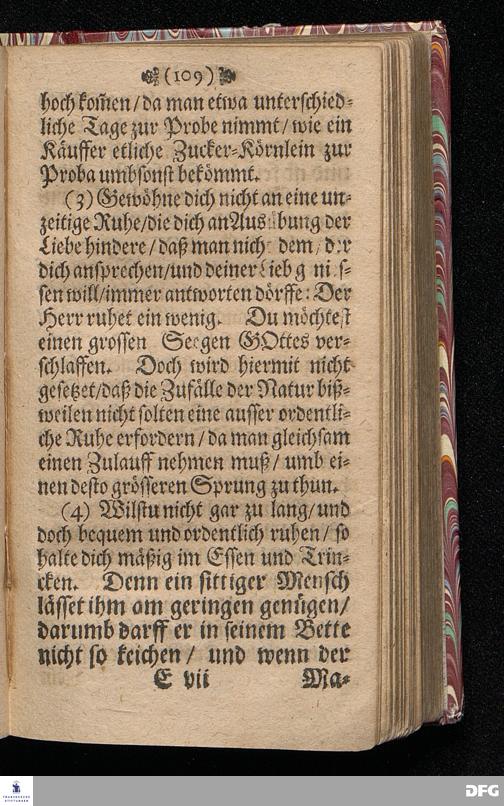 (109)
hoch kom̃en / da man etwa unterschied-
liche Tage zur Probe nimmt / wie ein
Käuffer etliche Zucker-Körnlein zur
Proba umbsonst bekömmt.
(3) Gewöhne dich nicht an eine un-
zeitige Ruhe / die dich an Ausübung der
Liebe hindere / daß man nicht dem / der
dich ansprechen / und deiner
sen will / immer antworten dörffe: Der
Herr ruhet ein wenig. Du möchtest
einen grossen Seegen GOttes ver-
schlaffen. Doch wird hiermit nicht
gesetzet / daß die Zufälle der Natur biß-
weilen nicht solten eine ausser ordentli-
che Ruhe erfordern / da man gleichsam
einen Zulauff nehmen muß / umb ei-
nen desto grösseren Sprung zu thun.
(4) Wilstu nicht gar zu lang / und
doch bequem und ordentlich ruhen / so
halte dich mäßig im Essen und Trin-
cken. Denn ein sittiger Mensch
lässet ihm am geringen genügen /
darumb darff er in seinem Bette
nicht so keichen / und wenn der
E vii Ma-
FRANCKESCHE STIFTUNGEN
DFG